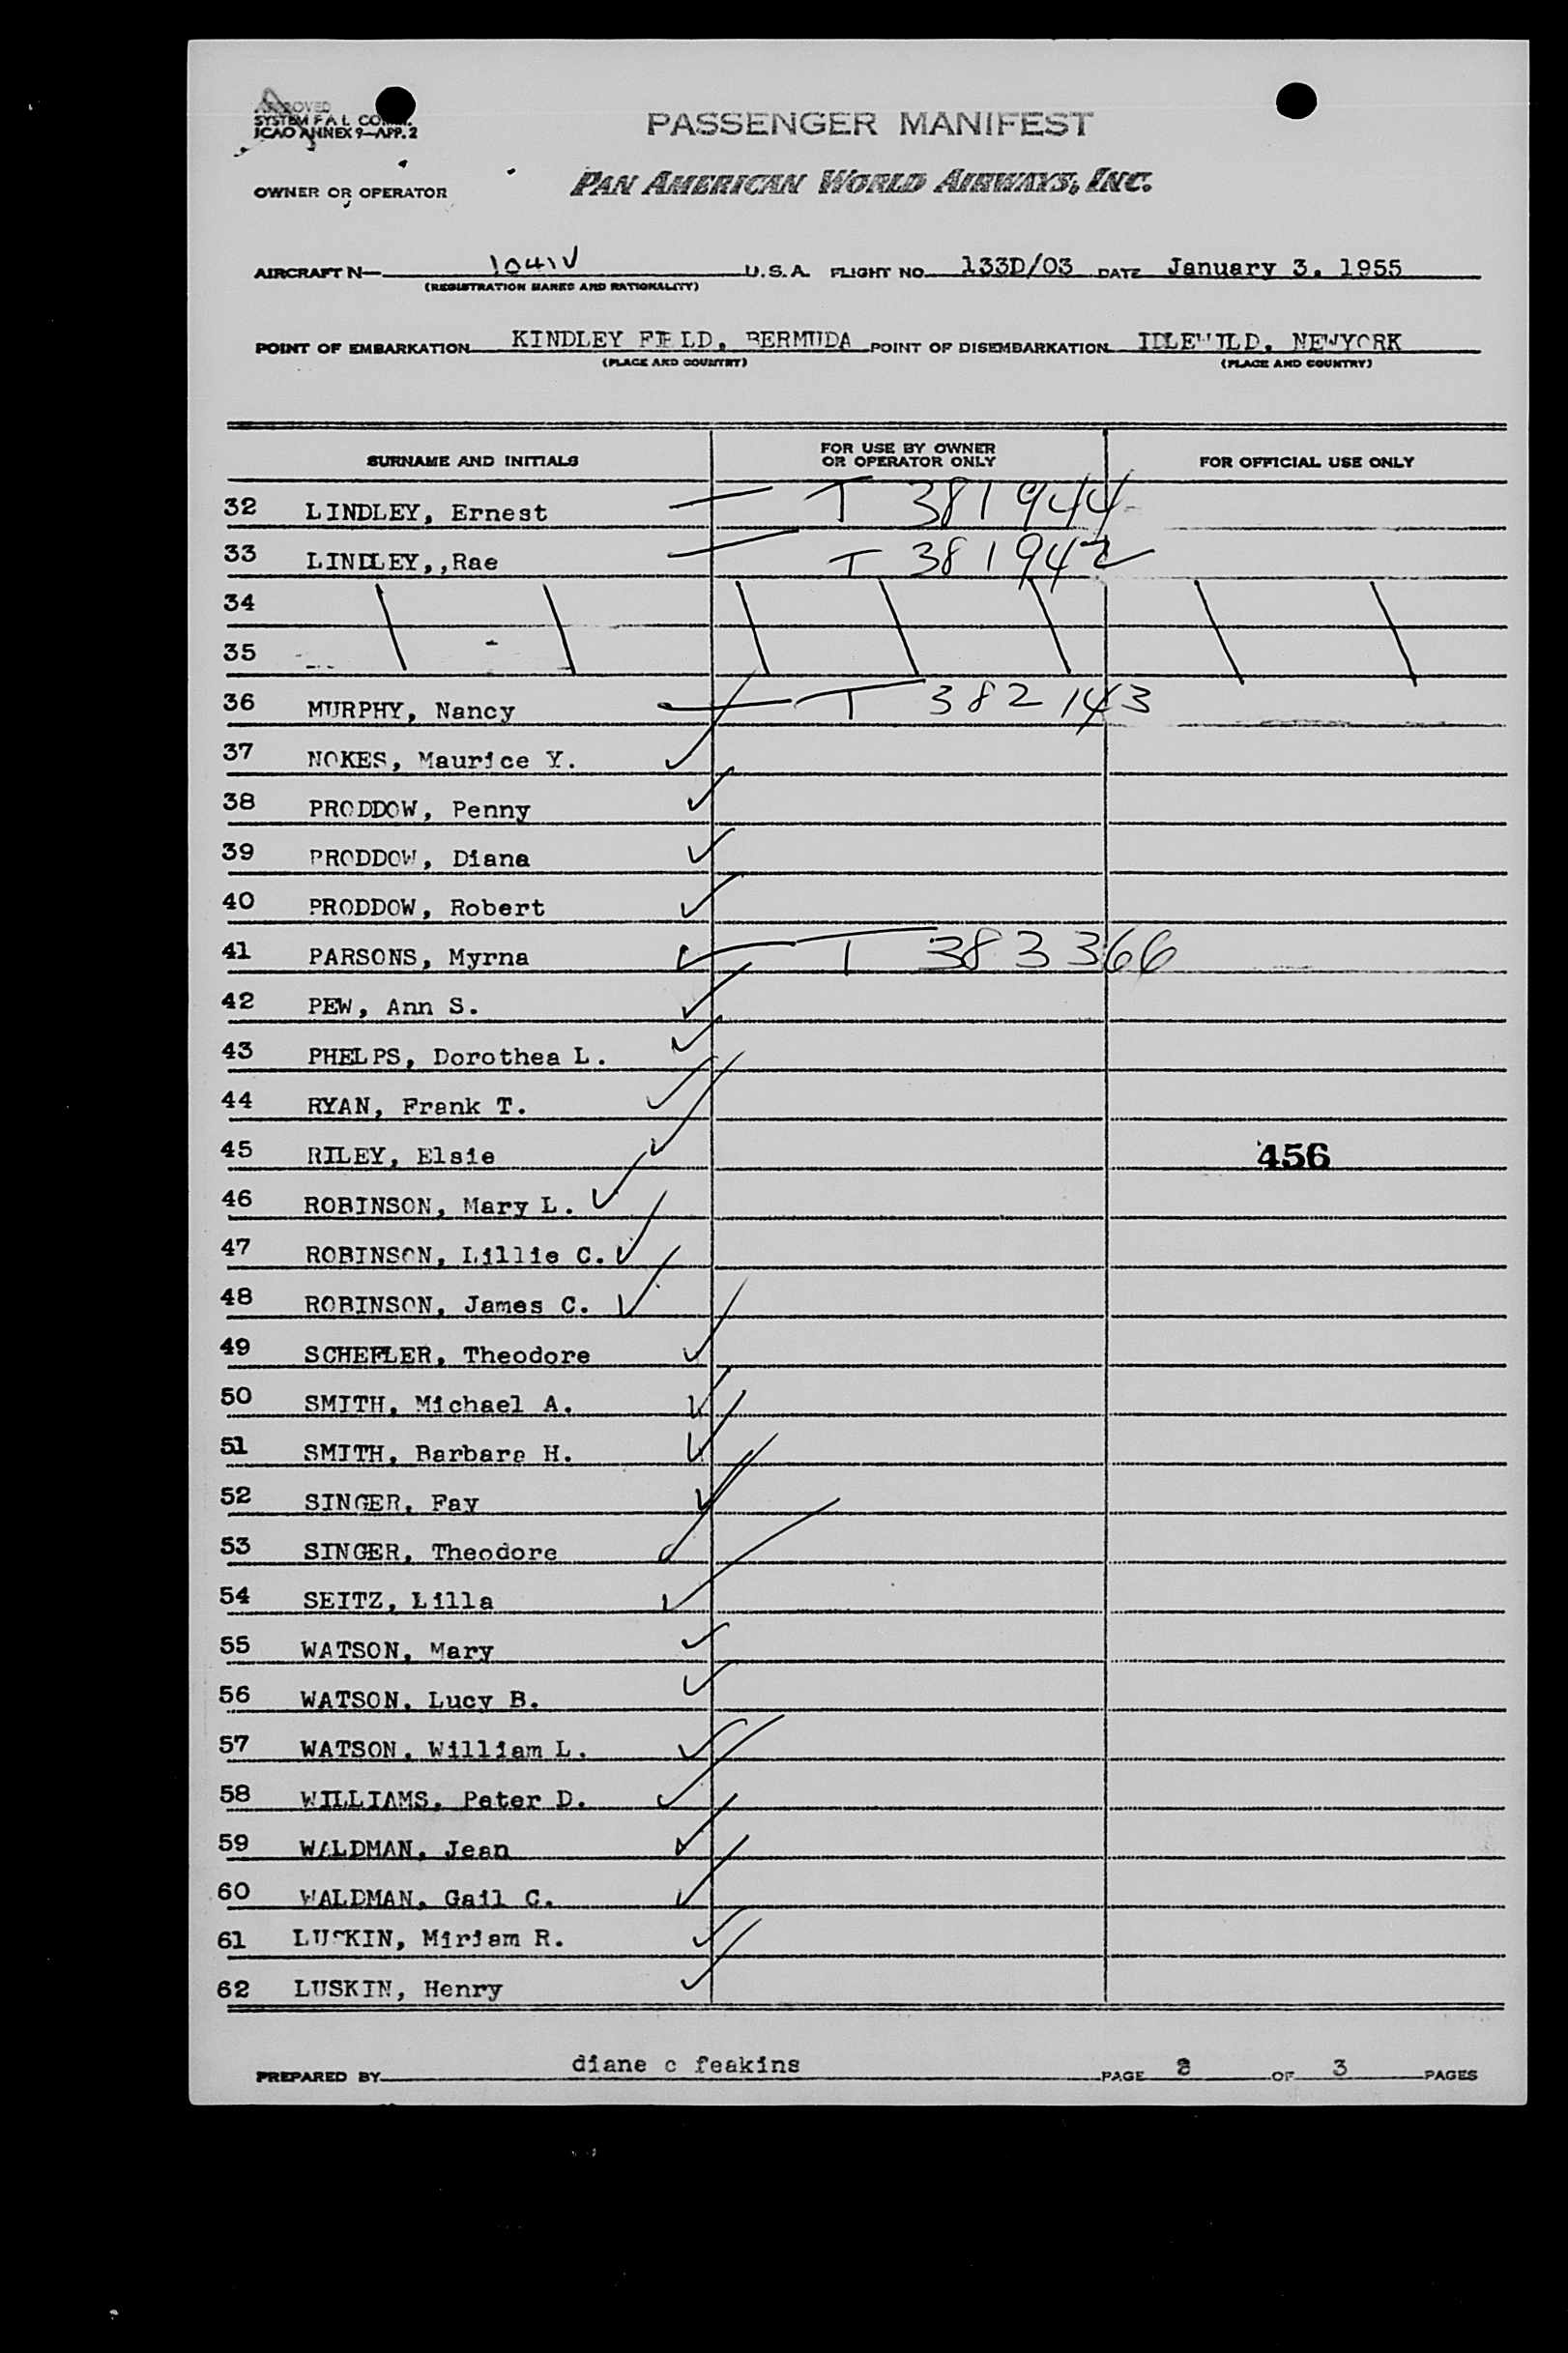 APPROVED
SYSTEM F A L COMM.
ICAO ANNEX 9—APP. 2
PASSENGER MANIFEST
OWNER OR OPERATOR PAN AMERICAN WORLD AIRWAYS, INC.
AIRCRAFT N— 1041V U.S.A. FLIGHT NO. 133D/03 DATE January 3. 1955
(REGISTRATION MARKS AND NATIONALITY)
POINT OF EMBARKATION KINDLEY FIELD, BERMUDA POINT OF DISEMBARKATION IDLEWILD, NEWYORK
(PLACE AND COUNTRY) (PLACE AND COUNTRY)
SURNAME AND INITIALS FOR USE BY OWNER OR OPERATOR ONLY FOR OFFICIAL USE ONLY
32 LINDLEY, Ernest T 381944
33 LINDLEY,,Rae T 381942
34
35
36 MURPHY, Nancy T 382143
37 NOKES, Maurice Y.
38 PRODDOW, Penny
39 PRODDOW, Diana
40 PRODDOW, Robert
41 PARSONS, Myrna T 383366
42 PEW, Ann S.
43 PHELPS, Dorothea L.
44 RYAN, Frank T.
45 RILEY, Elsie 456
46 ROBINSON, Mary L.
47 ROBINSON, Lillie C.
48 ROBINSON, James C.
49 SCHEFLER, Theodore
50 SMITH, Michael A.
51 SMITH, Barbara H.
52 SINGER, Fay
53 SINGER, Theodore
54 SEITZ, Lilla
55 WATSON, Mary
56 WATSON, Lucy B.
57 WATSON, William L.
58 WILLIAMS, Peter D.
59 WALDMAN, Jean
60 WALDMAN, Gail C.
61 LUSKIN, Miriam R.
62 LUSKIN, Henry
PREPARED BY diane c feakins PAGE 2 OF 3 PAGES